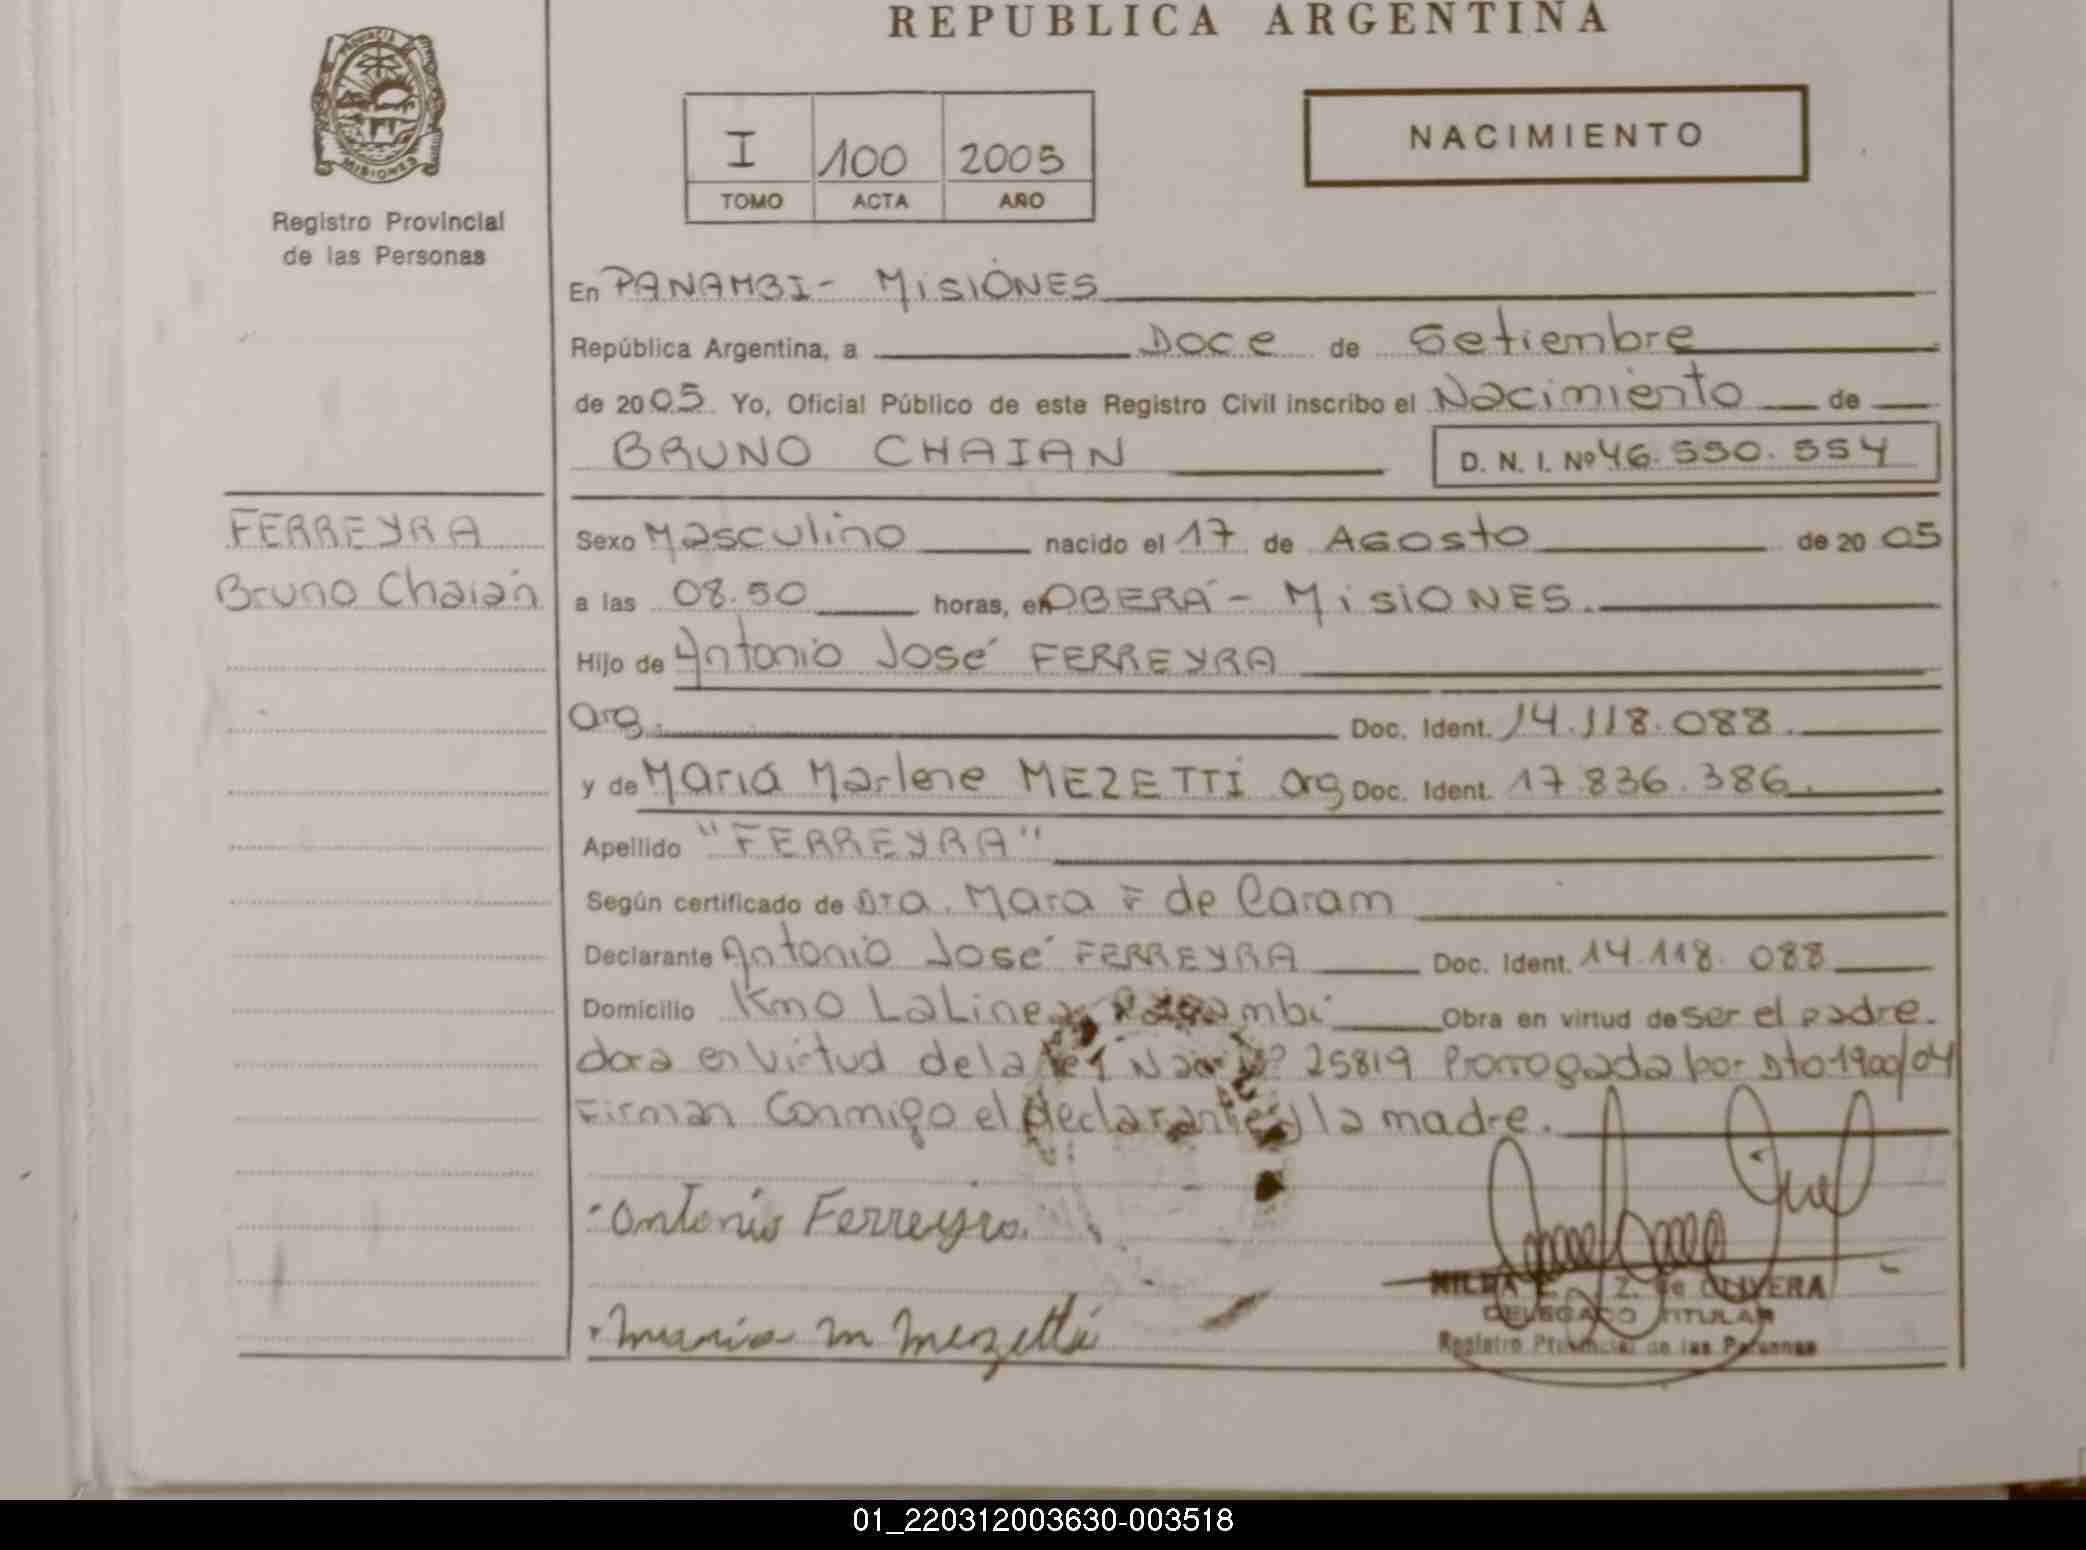 REPUBLICA ARGENTINA
PROVINCIA DE MISIONES
Registro Provincial
de las Personas
I 100 2005
TOMO ACTA AÑO
NACIMIENTO
En PANAMBI - MISIONES
República Argentina, a Doce de Setiembre
de 2005 Yo, Oficial Público de este Registro Civil inscribo el Nacimiento de
BRUNO CHAIAN D. N. I. Nº 46.550.554
FERREYRA
Bruno Chaián
Sexo Masculino nacido el 17 de Agosto de 2005
a las 08.50 horas, en OBERÁ - MISIONES.
Hijo de Antonio José FERREYRA
Arg. Doc. Ident. 14.118.088.
y de María Marlene MEZETTI Arg Doc. Ident. 17.836.386.
Apellido "FERREYRA"
Según certificado de Dra. Mara F de Caram
Declarante Antonio José FERREYRA Doc. Ident. 14.118.088
Domicilio Kmo La Linea Panambí Obra en virtud de ser el padre.
dora en virtud de la ley Nac Nº 25819 Prorrogada por Dto 1900/04
Firman Conmigo el declarante y la madre.
Antonio Ferreyra.
Maria M Mezetti
HILDA Z. de OLIVERA
DELEGADO TITULAR
Registro Provincial de las Personas
01_220312003630-003518